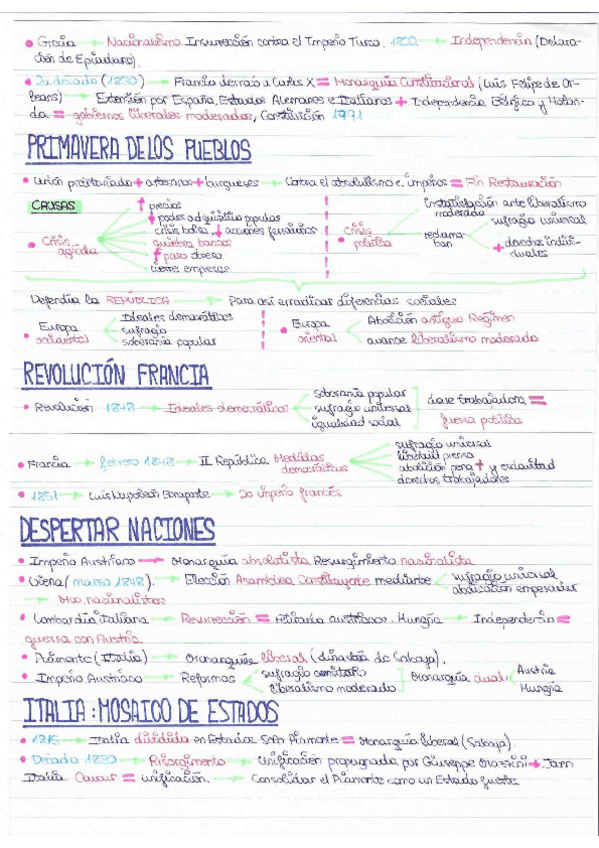 • Grecia → Nacionalismo. Insurrección contra el Imperio Turco. 1820. → Independencia (Declara-
ción de Epiaduro).
• 2a década (1830) → Francia derrocó a Carlos X = Monarquía Constitucional (Luis Felipe de Or-
leans) → Extensión por España, Estados Alemanes e Italianos + Independencia Bélgica y Holan-
da = gobiernos liberales moderados, Constitución 1791
PRIMAVERA DE LOS PUEBLOS
• Unión proletariado + artesanos + burgueses → Contra el absolutismo e imperios = Fin Restauración
CAUSAS
• Crisis agrícola
↑ precios
↓ poder adquisitivo popular
crisis bolsa, ↓ acciones ferroviarias
quiebra bancos
↑ paro obrero
cierre empresas
• Crisis política
Insatisfacción ante liberalismo
moderado
reclama-
ban
sufragio universal
+ derechos indivi-
duales
Defendía la REPÚBLICA → Para así erradicar diferencias sociales
• Europa
occidental
Ideales democráticos
sufragio
soberanía popular
• Europa
oriental
Abolición antiguo Régimen
avance liberalismo moderado
REVOLUCIÓN FRANCIA
• Revolución 1848 → Ideales democráticos
soberanía popular
sufragio universal
igualdad social
clase trabajadora =
fuerza política
• Francia → febrero 1848 → II República. Medidas
democráticas
sufragio universal
libertad prensa
abolición pena † y esclavitud
derechos trabajadores
• 1851 → Luis Napoleón Bonaparte → 2o imperio francés
DESPERTAR NACIONES
• Imperio Austriaco → Monarquía absolutista. Resurgimiento nacionalista
• Viena (marzo 1848). → Elección Asamblea Constituyente mediante
sufragio universal
abdicación emperador
→ Mov. nacionalistas
• Lombardía italiana → Resurrección = retirada austríacos. Hungría → Independencia =
guerra con Austria.
• Piamonte (Italia) → Monarquía liberal (dinastía de Saboya).
• Imperio Austríaco → Reformas
sufragio censitario
liberalismo moderado
Monarquía dual
Austria
Hungría
ITALIA: MOSAICO DE ESTADOS
• 1815 → Italia dividida en Estados. Solo Piamonte = Monarquía liberal (Saboya).
• Década 1830 → Risorgimento → Unificación propugnada por Giuseppe Mazzini + Jovn
Italia. Cavour = unificación. → Consolidar el Piamonte como un Estado fuerte